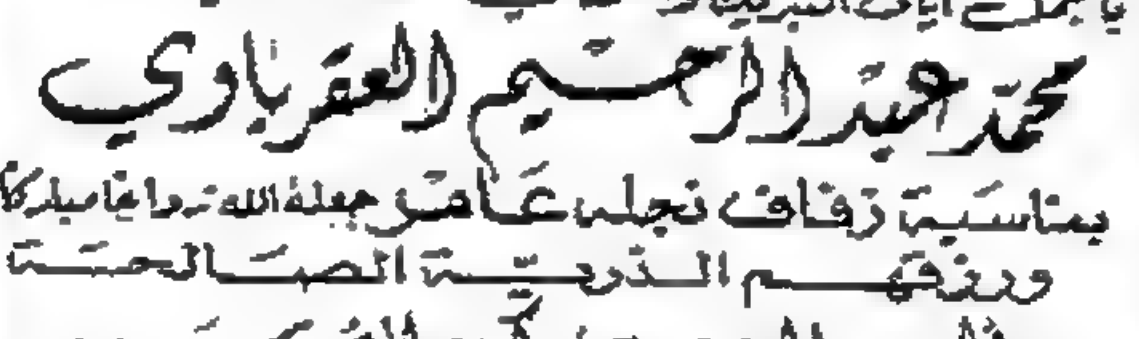 بأجمل آيات التبريك
محمد عبد الرحيم العقرباوي
بمناسبة زفاف نجله عامر جعله الله زواجا مباركا
ورزقهم الذرية الصالحة